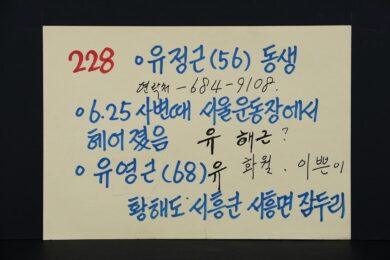 228 ○유정근(56) 동생
연락처 -684-9108.
○6.25 사변때 서울운동장에서
헤어졌음 유 해근?
○유영근(68) 유 화월. 이쁜이
황해도 서흥군 서흥면 잠두리